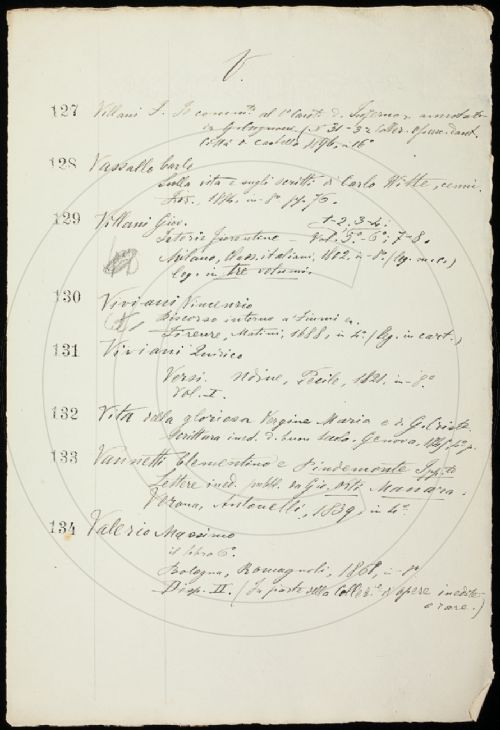 V.
127 Villani F. Il comm.to al 1° Canto d. Inferno, annotato
da G. Cugnoni. (N° 31-32 Collez. opusc. dant.
Città d. Castello 1896, in 16°
128 Vassallo Carlo
Sulla vita e sugli scritti di Carlo Witte, cenni.
Fir., 1884. in-8° pp. 76.
129 Villani Giov.
1-2, 3-4;
Istorie fiorentine - Vol. 5°-6°; 7-8.
Milano, Class. italiani, 1802. in-8° (leg. m. c.)
leg. in tre volumi.
130 Viviani Vincenzio
Discorso intorno a' fiumi
Firenze, Matini, 1688, in 4° (leg. in cart.)
131 Viviani Quirico
Versi. Udine, Pecile, 1821. in-8°
Vol. I.
132 Vita della gloriosa Vergine Maria e di G. Cristo
Scrittura ined. di buon secolo. Genova
133 Vannetti Clementino e Pindemonte Ipp.to
Lettere ined. pubb. da Gio. Orti Manara.
Verona, Antonelli, 1839, in 4°.
134 Valerio Massimo
il libro 6°.
Bologna, Romagnoli, in 8°
Disp. II. (Fa parte della Collez.e d'opere inedite
o rare.)